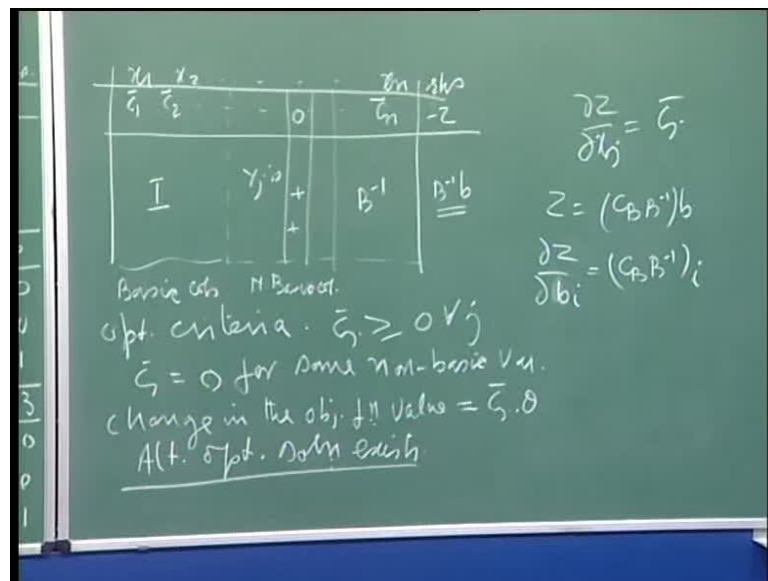 x₁ x₂ - - - - xₙ rhs
c̄₁ c̄₂ - - 0 c̄ₙ -Z
I Yⱼ's + B⁻¹ B⁻¹b
+
Basic cols N Basic col.
opt. criteria. c̄ⱼ ≥ 0 ∀j
c̄ⱼ = 0 for some non-basic var.
change in the obj. fn value = c̄ⱼ.θ
Alt. opt. soln exists
∂Z/∂xⱼ = c̄ⱼ
Z = (C_B B⁻¹)b
∂Z/∂bᵢ = (C_B B⁻¹)ᵢ
3
0
0
1